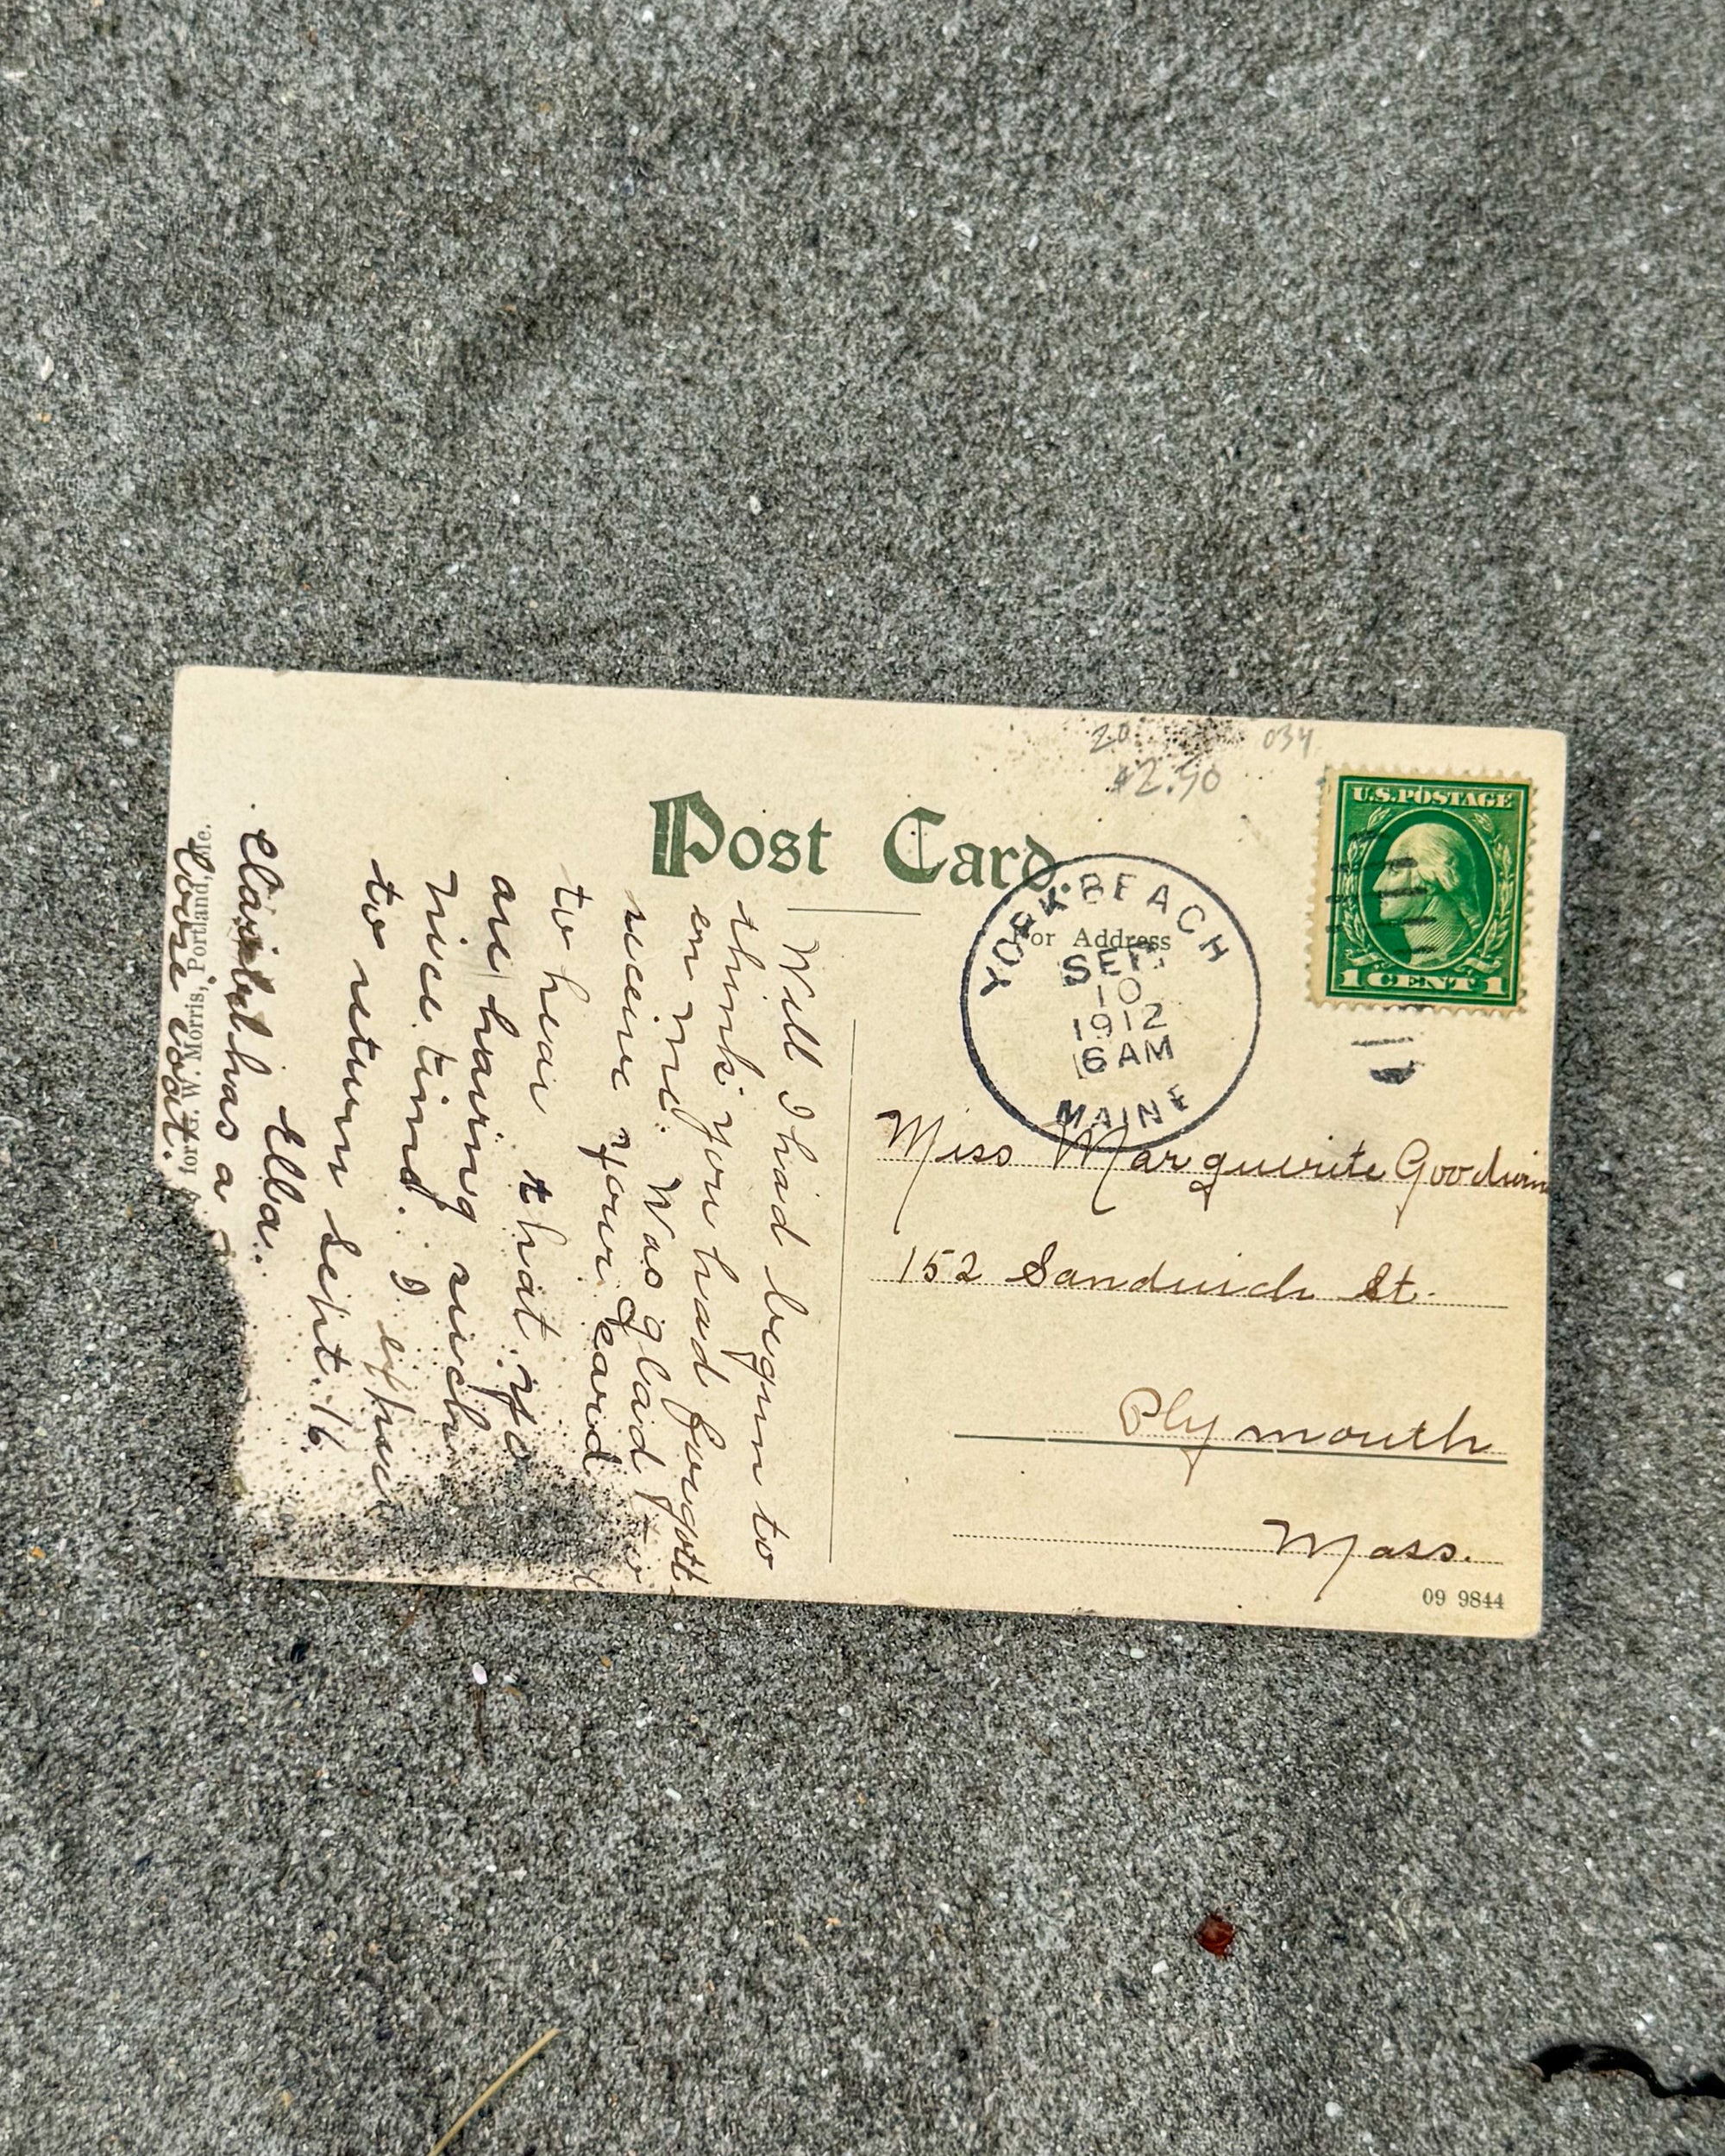 20 034
$2.50
U.S. POSTAGE
1 CENT 1
Post Card.
For Address
YORK BEACH
SEP
10
1912
6 AM
MAINE
Miss Marguerite Goodwin
152 Sandwich St.
Plymouth
Mass.
09 9844
Well I had begun to
think you had forgott
en me. Was glad to
receive your card
to hear that yo
are having such
nice time. I expect
to return Sept. 16
Ella.
has a
coat.
for W. W. Morris, Portland, Me.